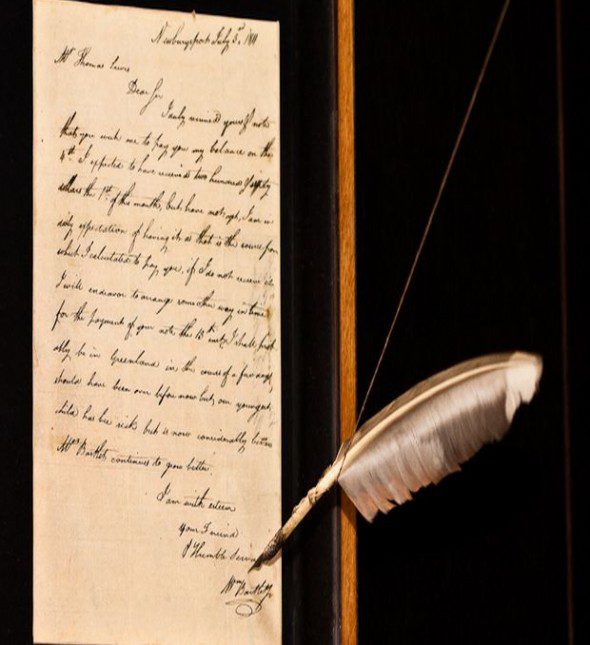 Newburyport July 5th. 1811
Mr Thomas Lewis
Dear Sir
I duly received yours of note
that you wish me to pay you my balance on the
4th. I expected to have received two hundred & eighty
dollars the 1st of the month, but have not yet, I am in
daily expectation of having it as that is the source from
which I calculated to pay you, if I do not receive it
I will endeavor to arrange some other way in time
for the payment of your note the 15th inst I shall prob
ably be in Greenland in the course of a few days,
should have been over before now but our youngest
child has been sick but is now considerably better
Mrs Bartlet continues to grow better.
I am with esteem
your Friend
& Humble Servan
Wm Bartlet Jr